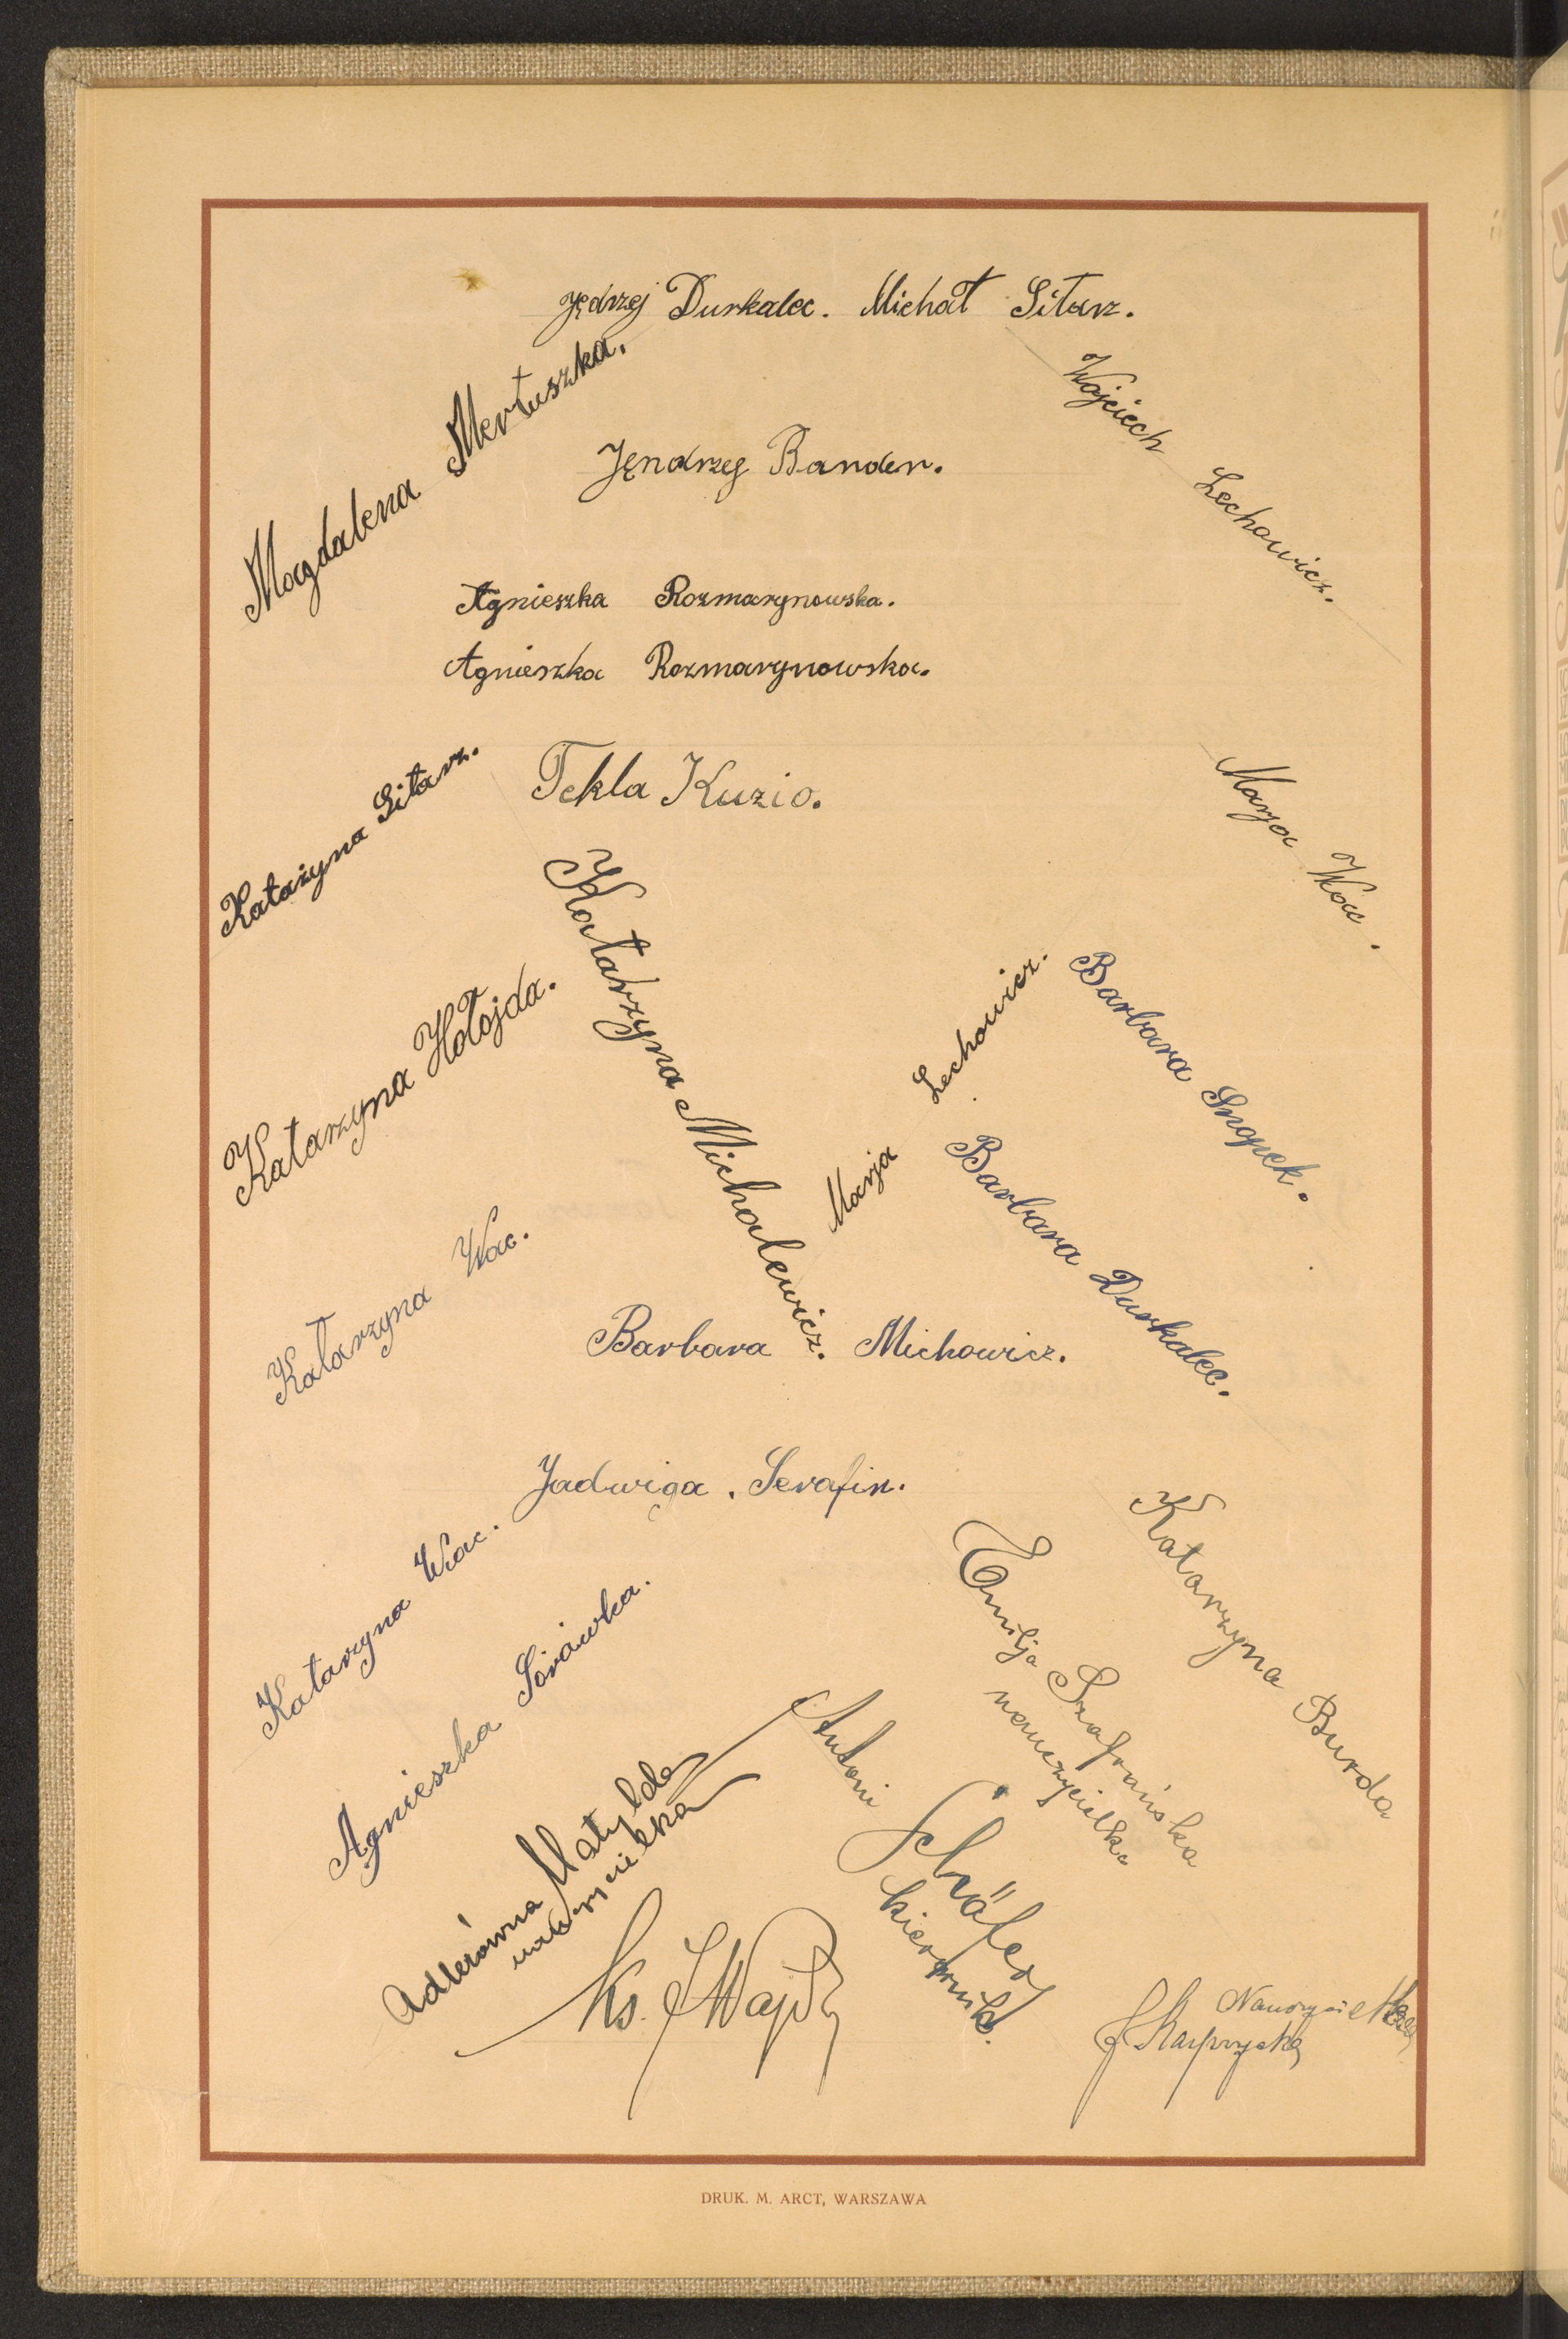 Jędrzej Durkalec. Michał Sitarz.
Magdalena Mertuszka.
Wojciech Lechowicz.
Jędnrzej Bander.
Agnieszka Rozmarynowska.
Agnieszka Rozmarynowska.
Katażyna Sitarz.
Tekla Kuzio.
Marja Wac.
Katarzyna Hołojda.
Katarzyna Michalewicz.
Marja Lechowicz.
Barbara Snopek.
Barbara Durkalec.
Katarzyna Wac.
Barbara Michowicz.
Jadwiga. Serafin.
Katarzyna Wac.
Agnieszka Sirawka.
Emilja Szafrańska
nauczycielka
Katarzyna Burda
Adlerówna Matylda
nauczycielka
Antoni Schäfer
kierownik.
Ks. J Wajda
Nauczycielka
J Kasprzycka
DRUK. M. ARCT, WARSZAWA